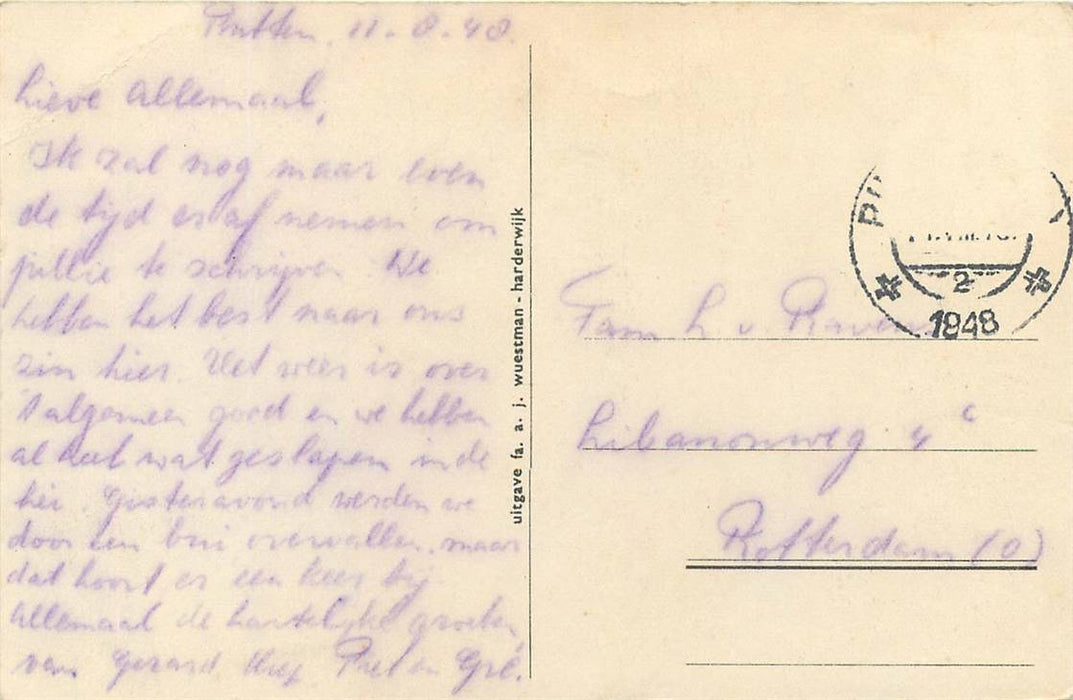 Putten, 11-8-48.
Lieve Allemaal,
Ik zal nog maar even
de tijd er af nemen om
jullie te schrijven We
hebben het best naar ons
zin hier. Het weer is over
't algemeen goed en we hebben
al heel wat geslapen in de
hei. Gisteravond werden we
door een bui overvallen. maar
dat hoort er een keer bij
Allemaal de hartelijke groeten,
van Gerard Piet en
uitgave fa. a. j. wuestman - harderwijk
2
1948
Fam L. v.
Libanonweg 4 c
Rotterdam (O)